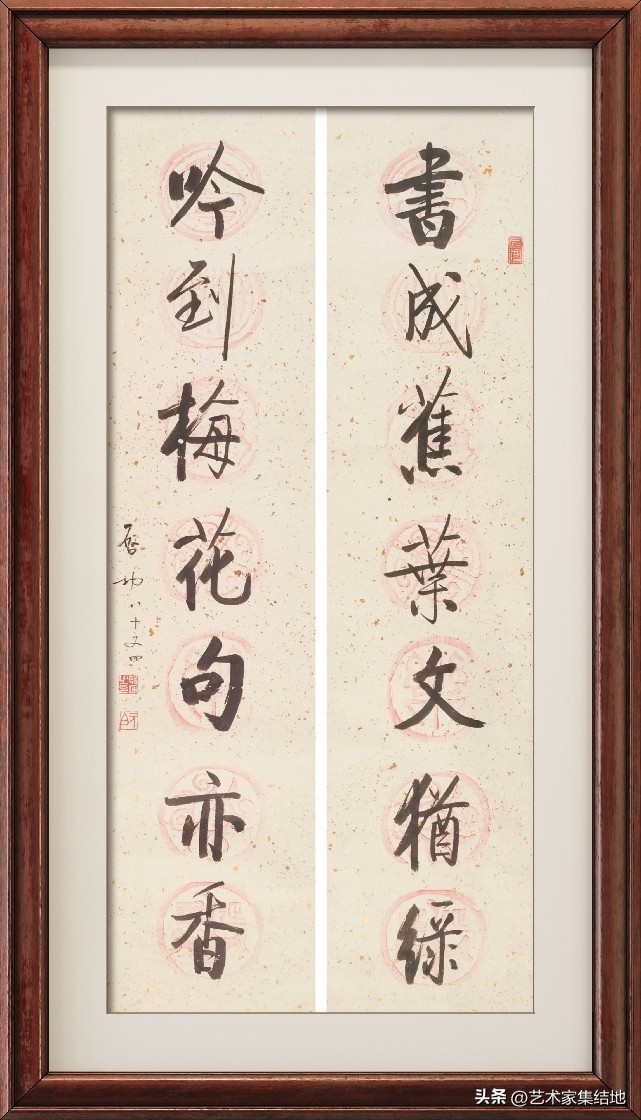 書成蕉葉文猶綠
吟到梅花句亦香
啓功八十又四
头条 @艺术家集结地